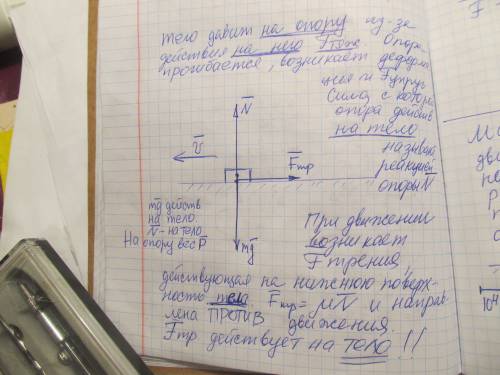 Тело давит на опору из-за
действия на него Fтяж. Опора
прогибается, возникает деформа
ция и Fупруг
Сила, с которо
опора действ
на тело
называ
реакцией
опоры N̄
N̄
v̄
F̄тр
mḡ
mḡ действ
на тело.
N̄ - на тело
На опору вес P̄
При движении
возникает
Fтрения,
действующая на нижнюю поверх-
ность тела. F̄тр = μN̄ и направ-
лена ПРОТИВ движения.
Fтр действует на тело!!
F